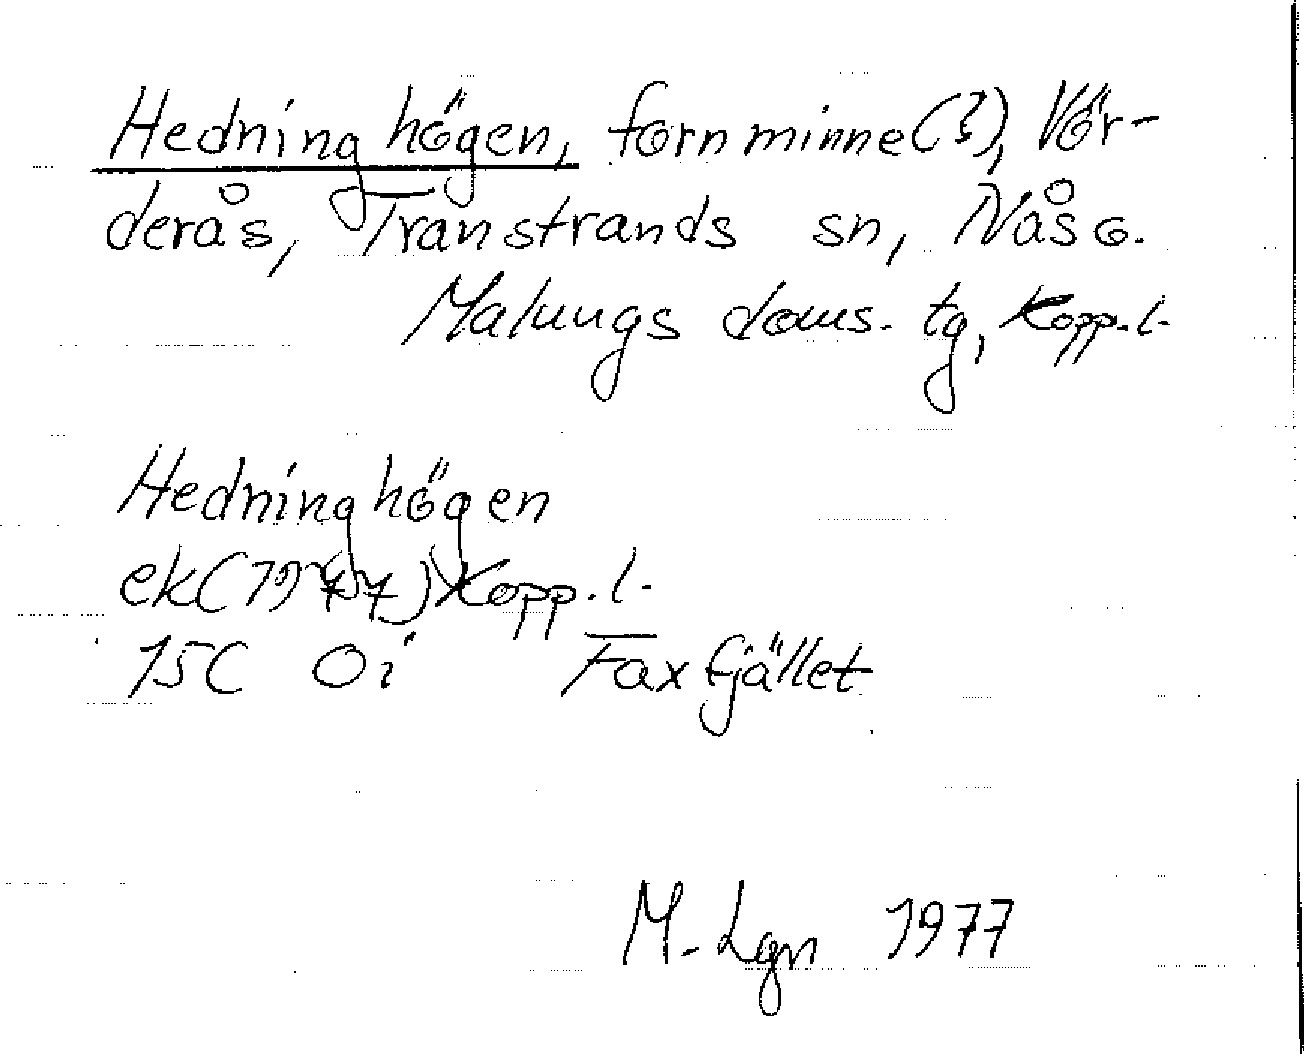 Hedninghögen, fornminne(?), Vör-
derås, Transtrands sn, Nås o.
Malungs doms. tg, Kopp. l.
Hedninghögen
ek(1977)Kopp. l.
15C Oi Faxfjället
M-Lgn 1977